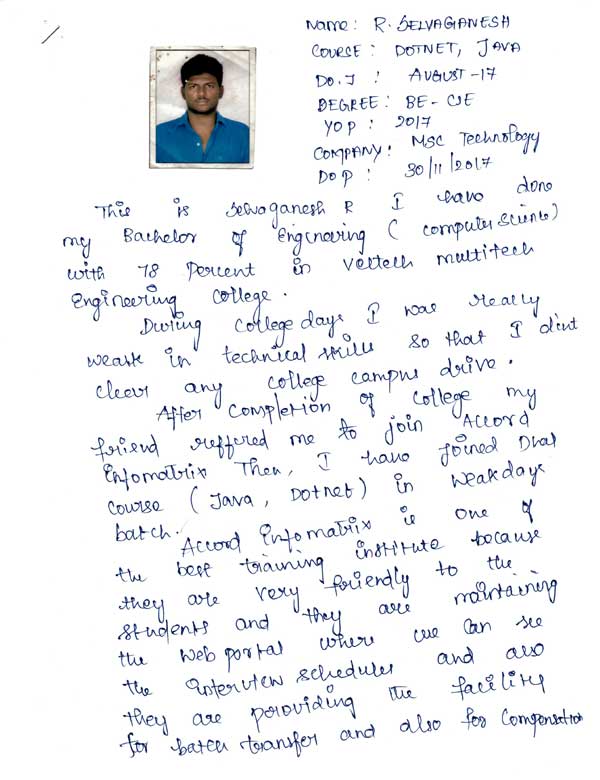 Name: R. SELVAGANESH
COURSE: DOTNET, JAVA
D.O.J : AUGUST-17
DEGREE: BE-CSE
YOP : 2017
COMPANY: MSC Technology
DOP : 30/11/2017
This is Selvaganesh R I have done
my Bachelor of Engineering (computer science)
with 78 percent in Veltech multitech
Engineering college.
During college days I was really
weak in technical skills so that I did'nt
cleer any college campus drive.
After completion of college my
friend reffered me to join Accord
Infomatrix Then, I have joined Dual
course (Java, Dotnet) in weakdays
batch.
Accord Infomatrix is one of
the best training institute because
they are very friendly to the
students and they are maintaining
the web portal where we can see
the interview schedules and also
they are providing the facility
for batch transfer and also for compensation